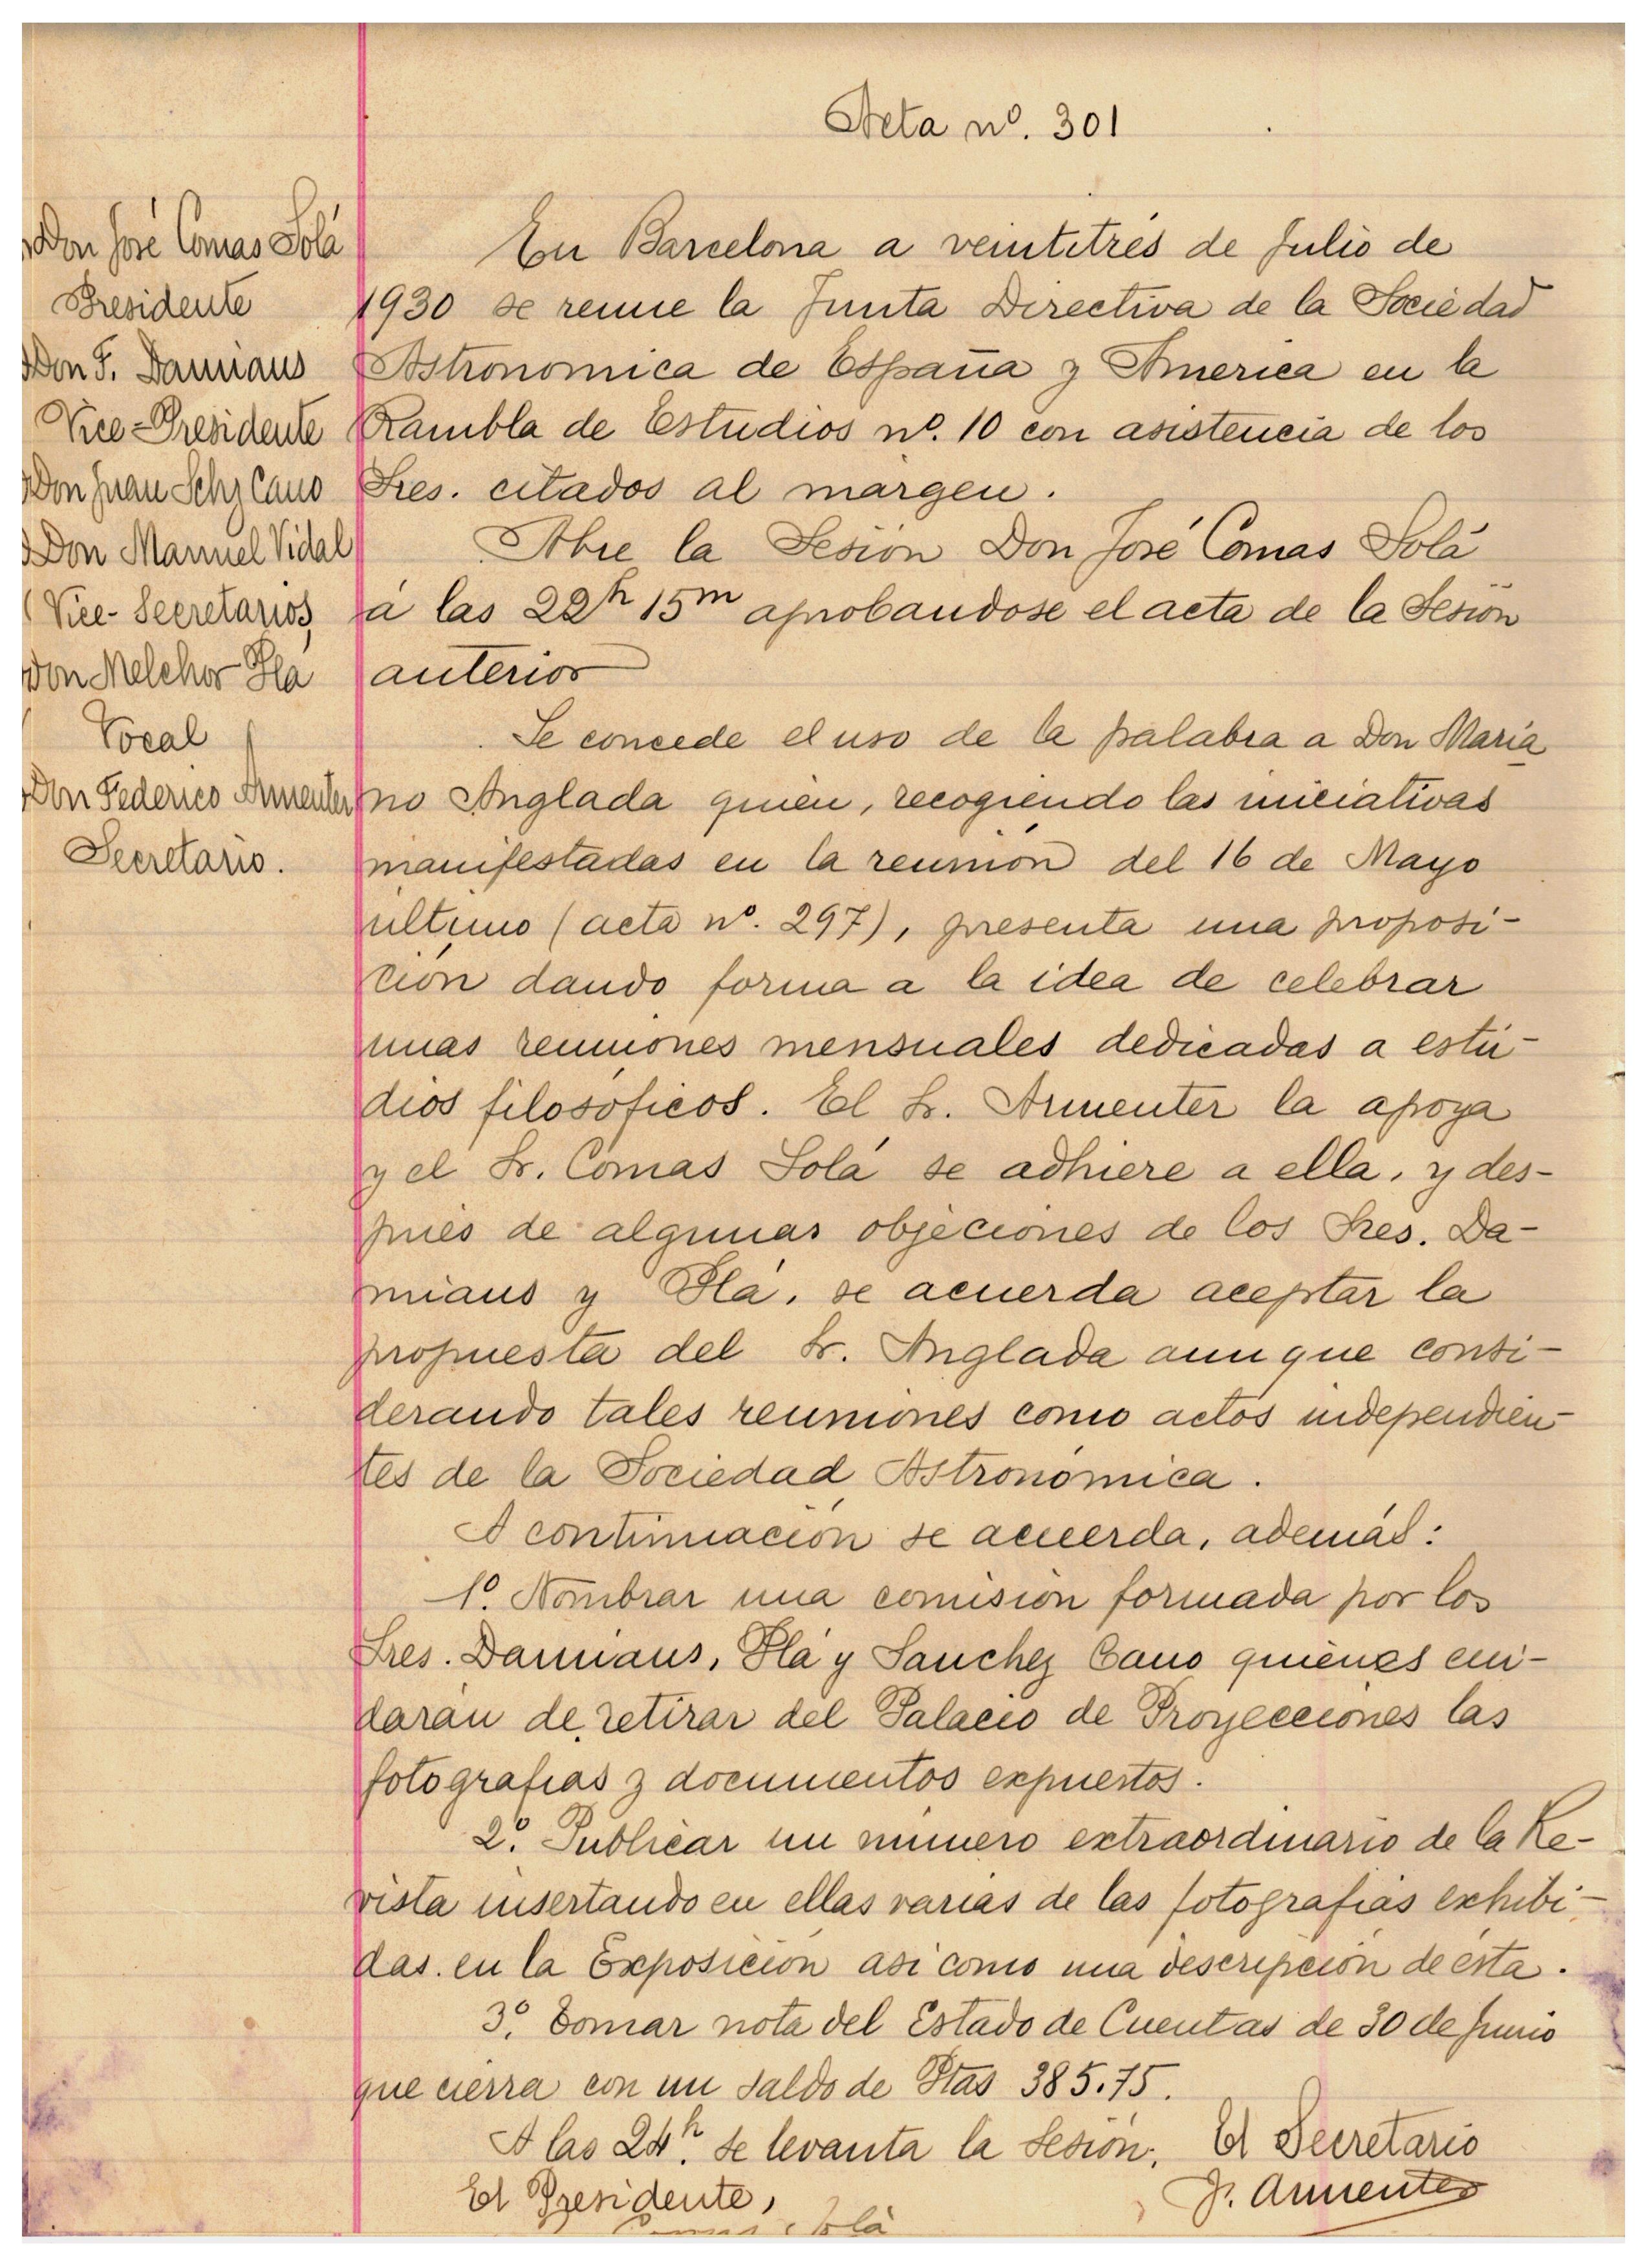 Acta nº. 301
Don José Comas Solá
Presidente
Don F. Damians
Vice-Presidente
Don Juan Schz Cano
Don Manuel Vidal
Vice-Secretarios
Don Melchor Plá
Vocal
Don Federico Armenter
Secretario.
En Barcelona a veintitrés de Julio de
1930 se reune la Junta Directiva de la Sociedad
Astronomica de España y America en la
Rambla de Estudios nº. 10 con asistencia de los
Sres. citados al margen.
Abre la Sesión Don José Comas Solá
á las 22h 15m aprobandose el acta de la Sesión
anterior
Se concede el uso de la palabra a Don Maria
no Anglada quien, recogiendo las iniciativas
manifestadas en la reunión del 16 de Mayo
ultimo (acta nº. 297), presenta una proposi-
cion dando forma a la idea de celebrar
unas reuniones mensuales dedicadas a estu-
dios filosóficos. El Sr. Armenter la apoya
y el Sr. Comas Solá se adhiere a ella, y des-
pués de algunas objeciones de los Sres. Da-
mians y Plá, se acuerda aceptar la
propuesta del Sr. Anglada aunque consi-
derando tales reuniones como actos independien-
tes de la Sociedad Astronómica.
A continuación se acuerda, además:
1º. Nombrar una comisión formada por los
Sres. Damians, Plá y Sanchez Cano quienes cui-
darán de retirar del Palacio de Proyecciones las
fotografias y documentos expuestos.
2º. Publicar un número extraordinario de la Re-
vista insertando en ellas varias de las fotografias exhibi-
das en la Exposición asi como una descripción de ésta.
3º. Tomar nota del Estado de Cuentas de 30 de Junio
que cierra con un saldo de Ptas 385.75.
A las 24h. se levanta la Sesión.
El Secretario
El Presidente,
F. Armenter
Comas Solá